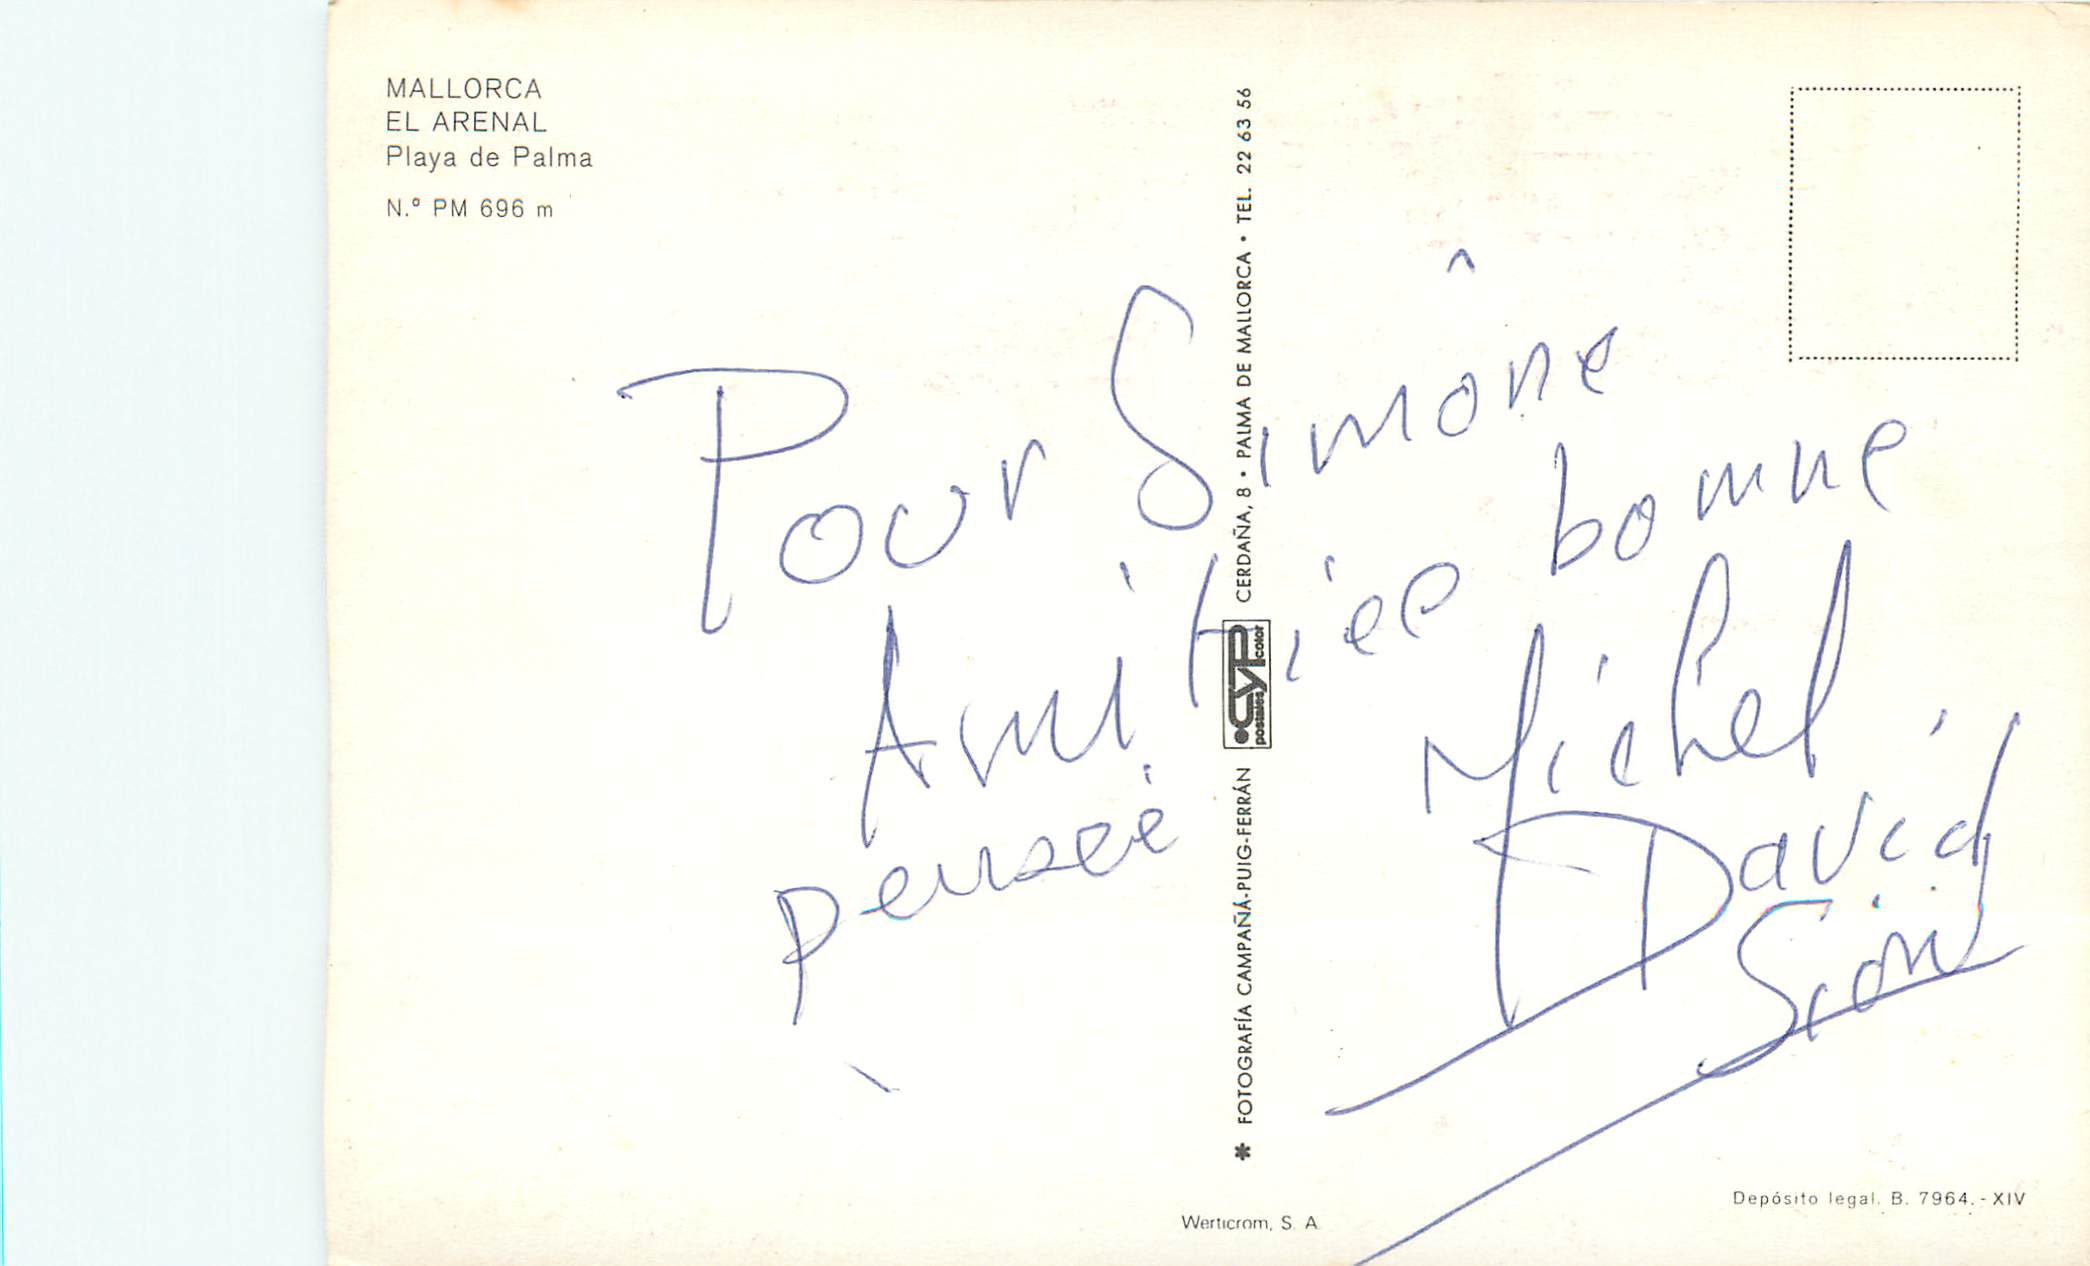 MALLORCA
EL ARENAL
Playa de Palma
N.º PM 696 m
Pour Simône
Amitiée bonne
pensée
Michel
David
Sion
✱ FOTOGRAFÍA CAMPAÑÁ-PUIG-FERRÁN postales CYP color CERDAÑA, 8 • PALMA DE MALLORCA • TEL. 22 63 56
Werticrom, S. A.
Depósito legal. B. 7964. - XIV